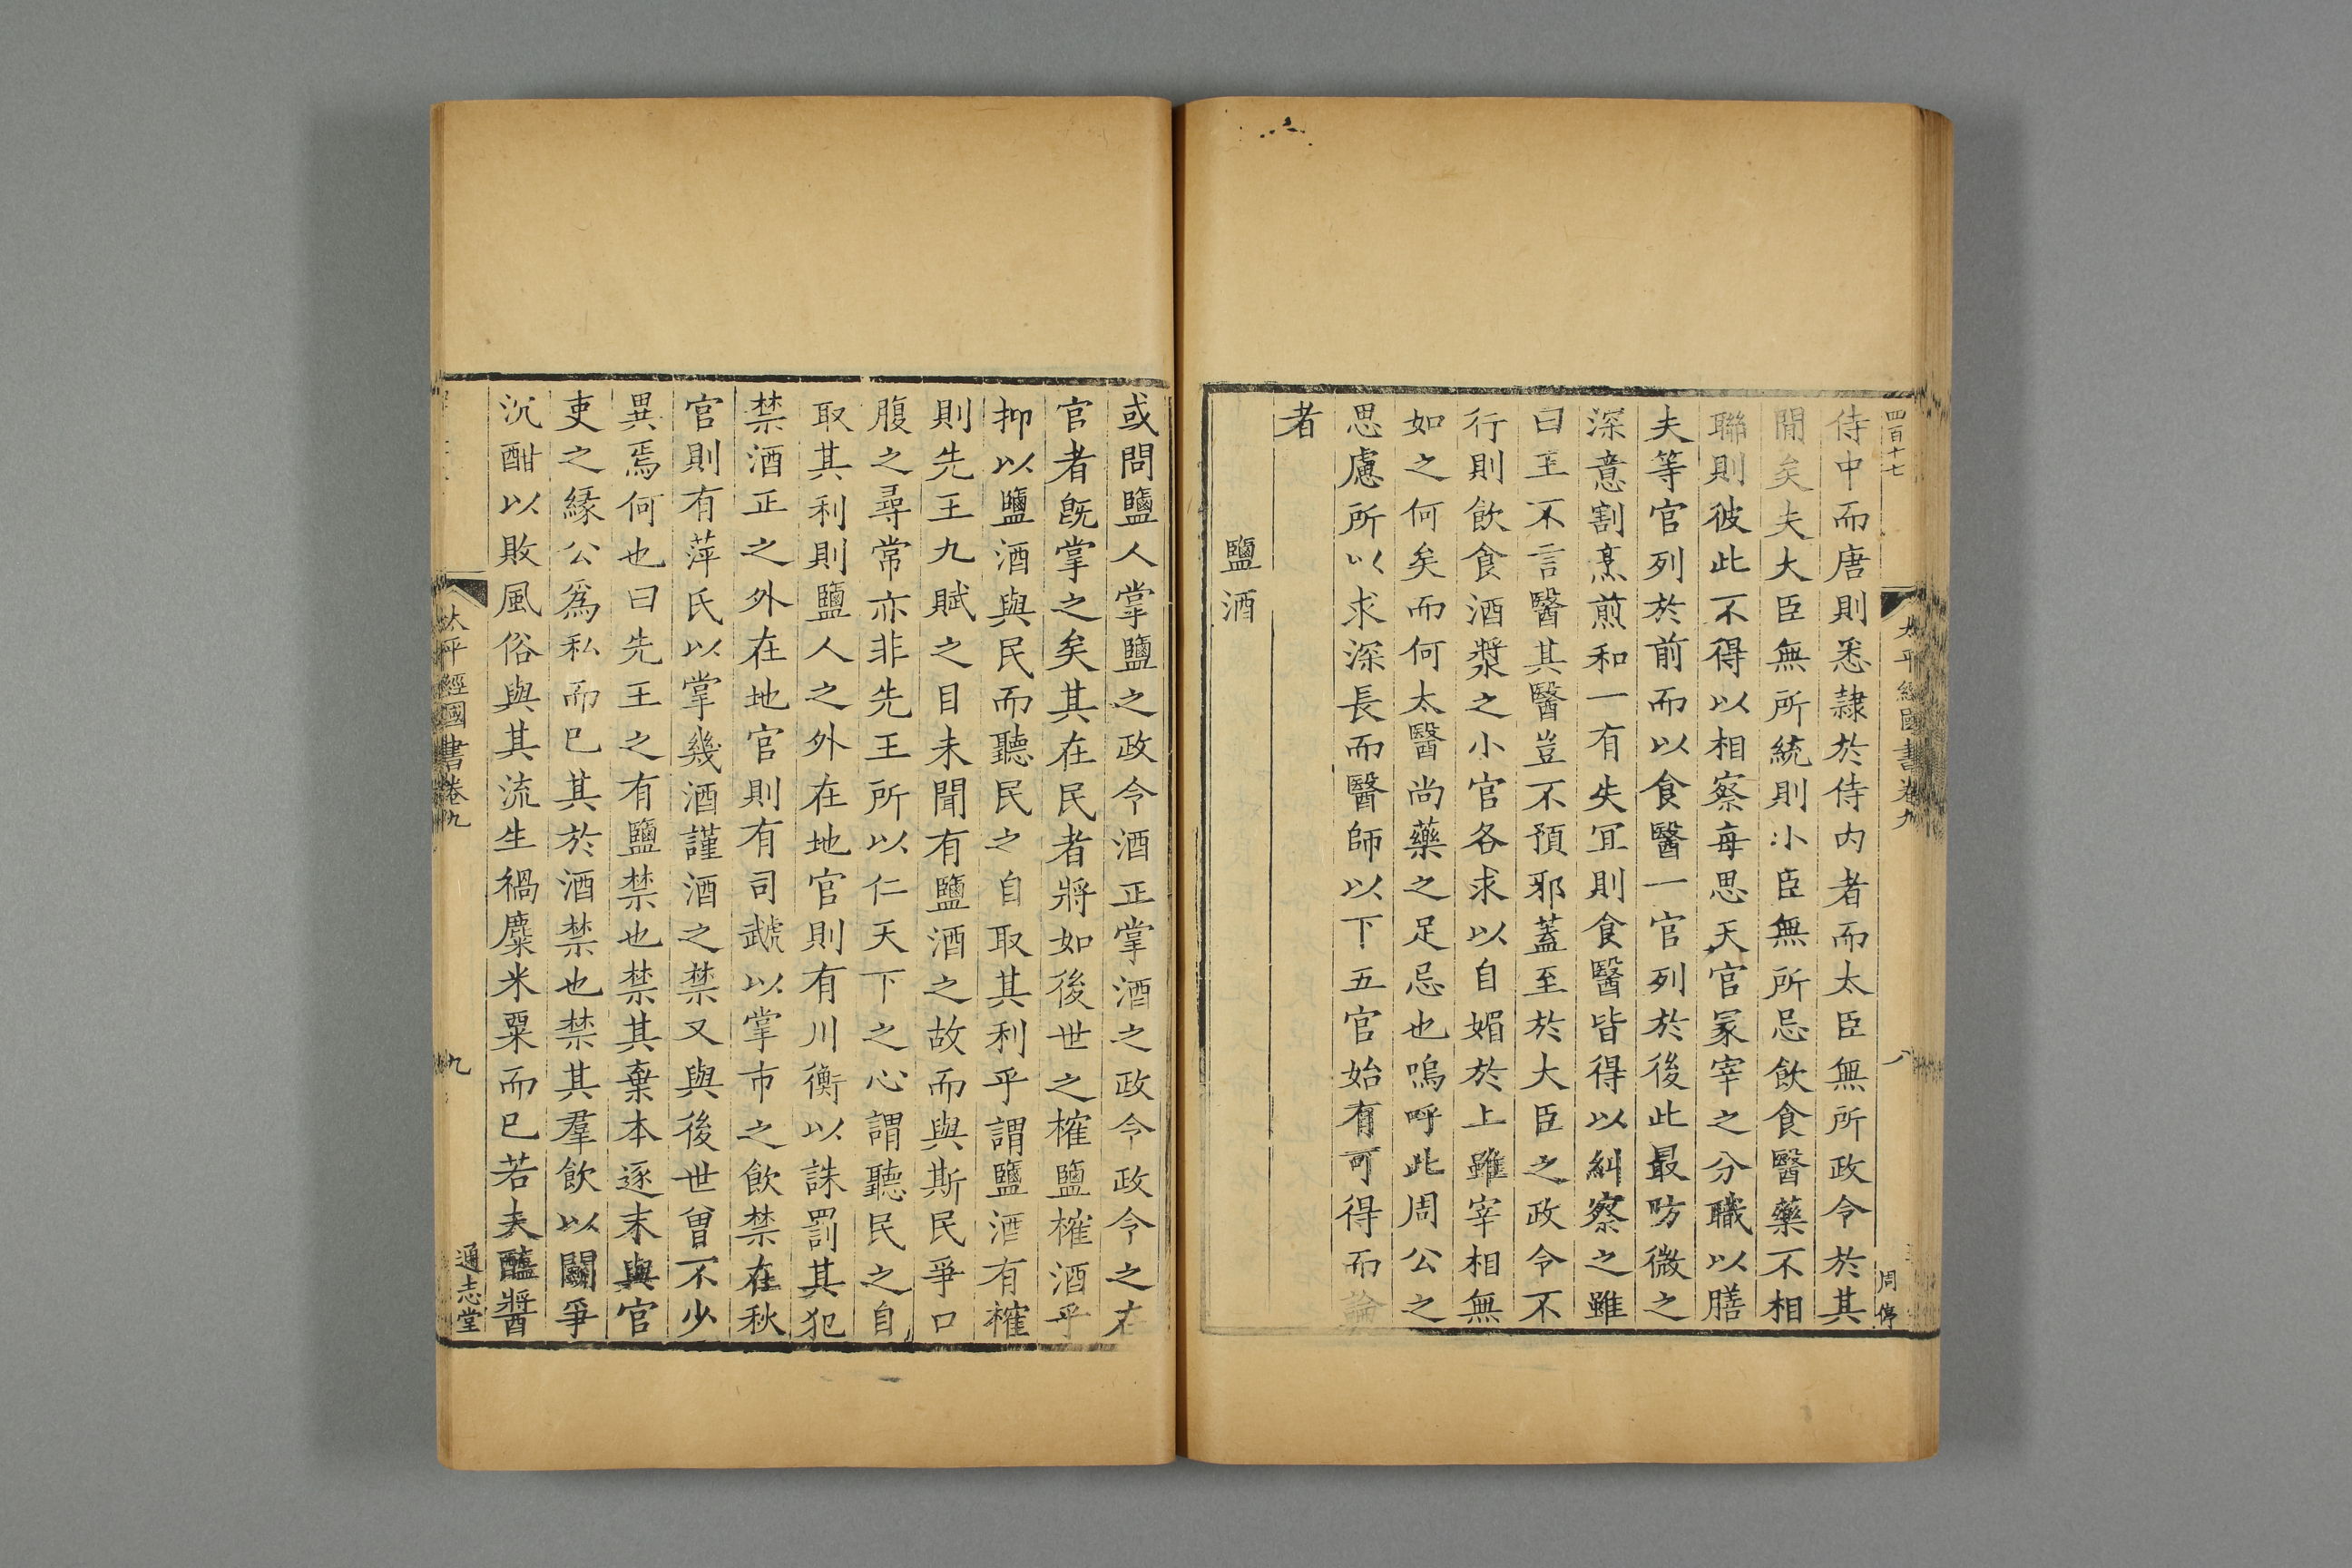 四百十七
太平經國書卷九
八
周傳
侍中而唐則悉隷於侍内者而太臣無所政令於其
閒矣夫大臣無所統則小臣無所忌飲食醫藥不相
聯則彼此不得以相察每思天官冢宰之分職以膳
夫等官列於前而以食醫一官列於後此最昉微之
深意割烹煎和一有失冝則食醫皆得以糾察之雖
曰王不言醫其醫豈不預邪蓋至於大臣之政令不
行則飲食酒漿之小官各求以自媚於上雖宰相無
如之何矣而何太醫尚藥之足忌也嗚呼此周公之
思慮所以求深長而醫師以下五官始有可得而論
者
鹽酒
或問鹽人掌鹽之政令酒正掌酒之政令政令之在
官者旣掌之矣其在民者將如後世之榷鹽榷酒乎
抑以鹽酒與民而聽民之自取其利乎謂鹽酒有榷
則先王九賦之目未聞有鹽酒之故而與斯民爭口
腹之尋常亦非先王所以仁天下之心謂聽民之自
取其利則鹽人之外在地官則有川衡以誅罰其犯
禁酒正之外在地官則有司虣以掌市之飲禁在秋
官則有萍氏以掌幾酒謹酒之禁又與後世曾不少
異焉何也曰先王之有鹽禁也禁其棄本逐末與官
吏之緣公爲私而已其於酒禁也禁其羣飲以鬬爭
沉酣以敗風俗與其流生禍麋米粟而已若夫醯醬
太平經國書卷九
九
通志堂